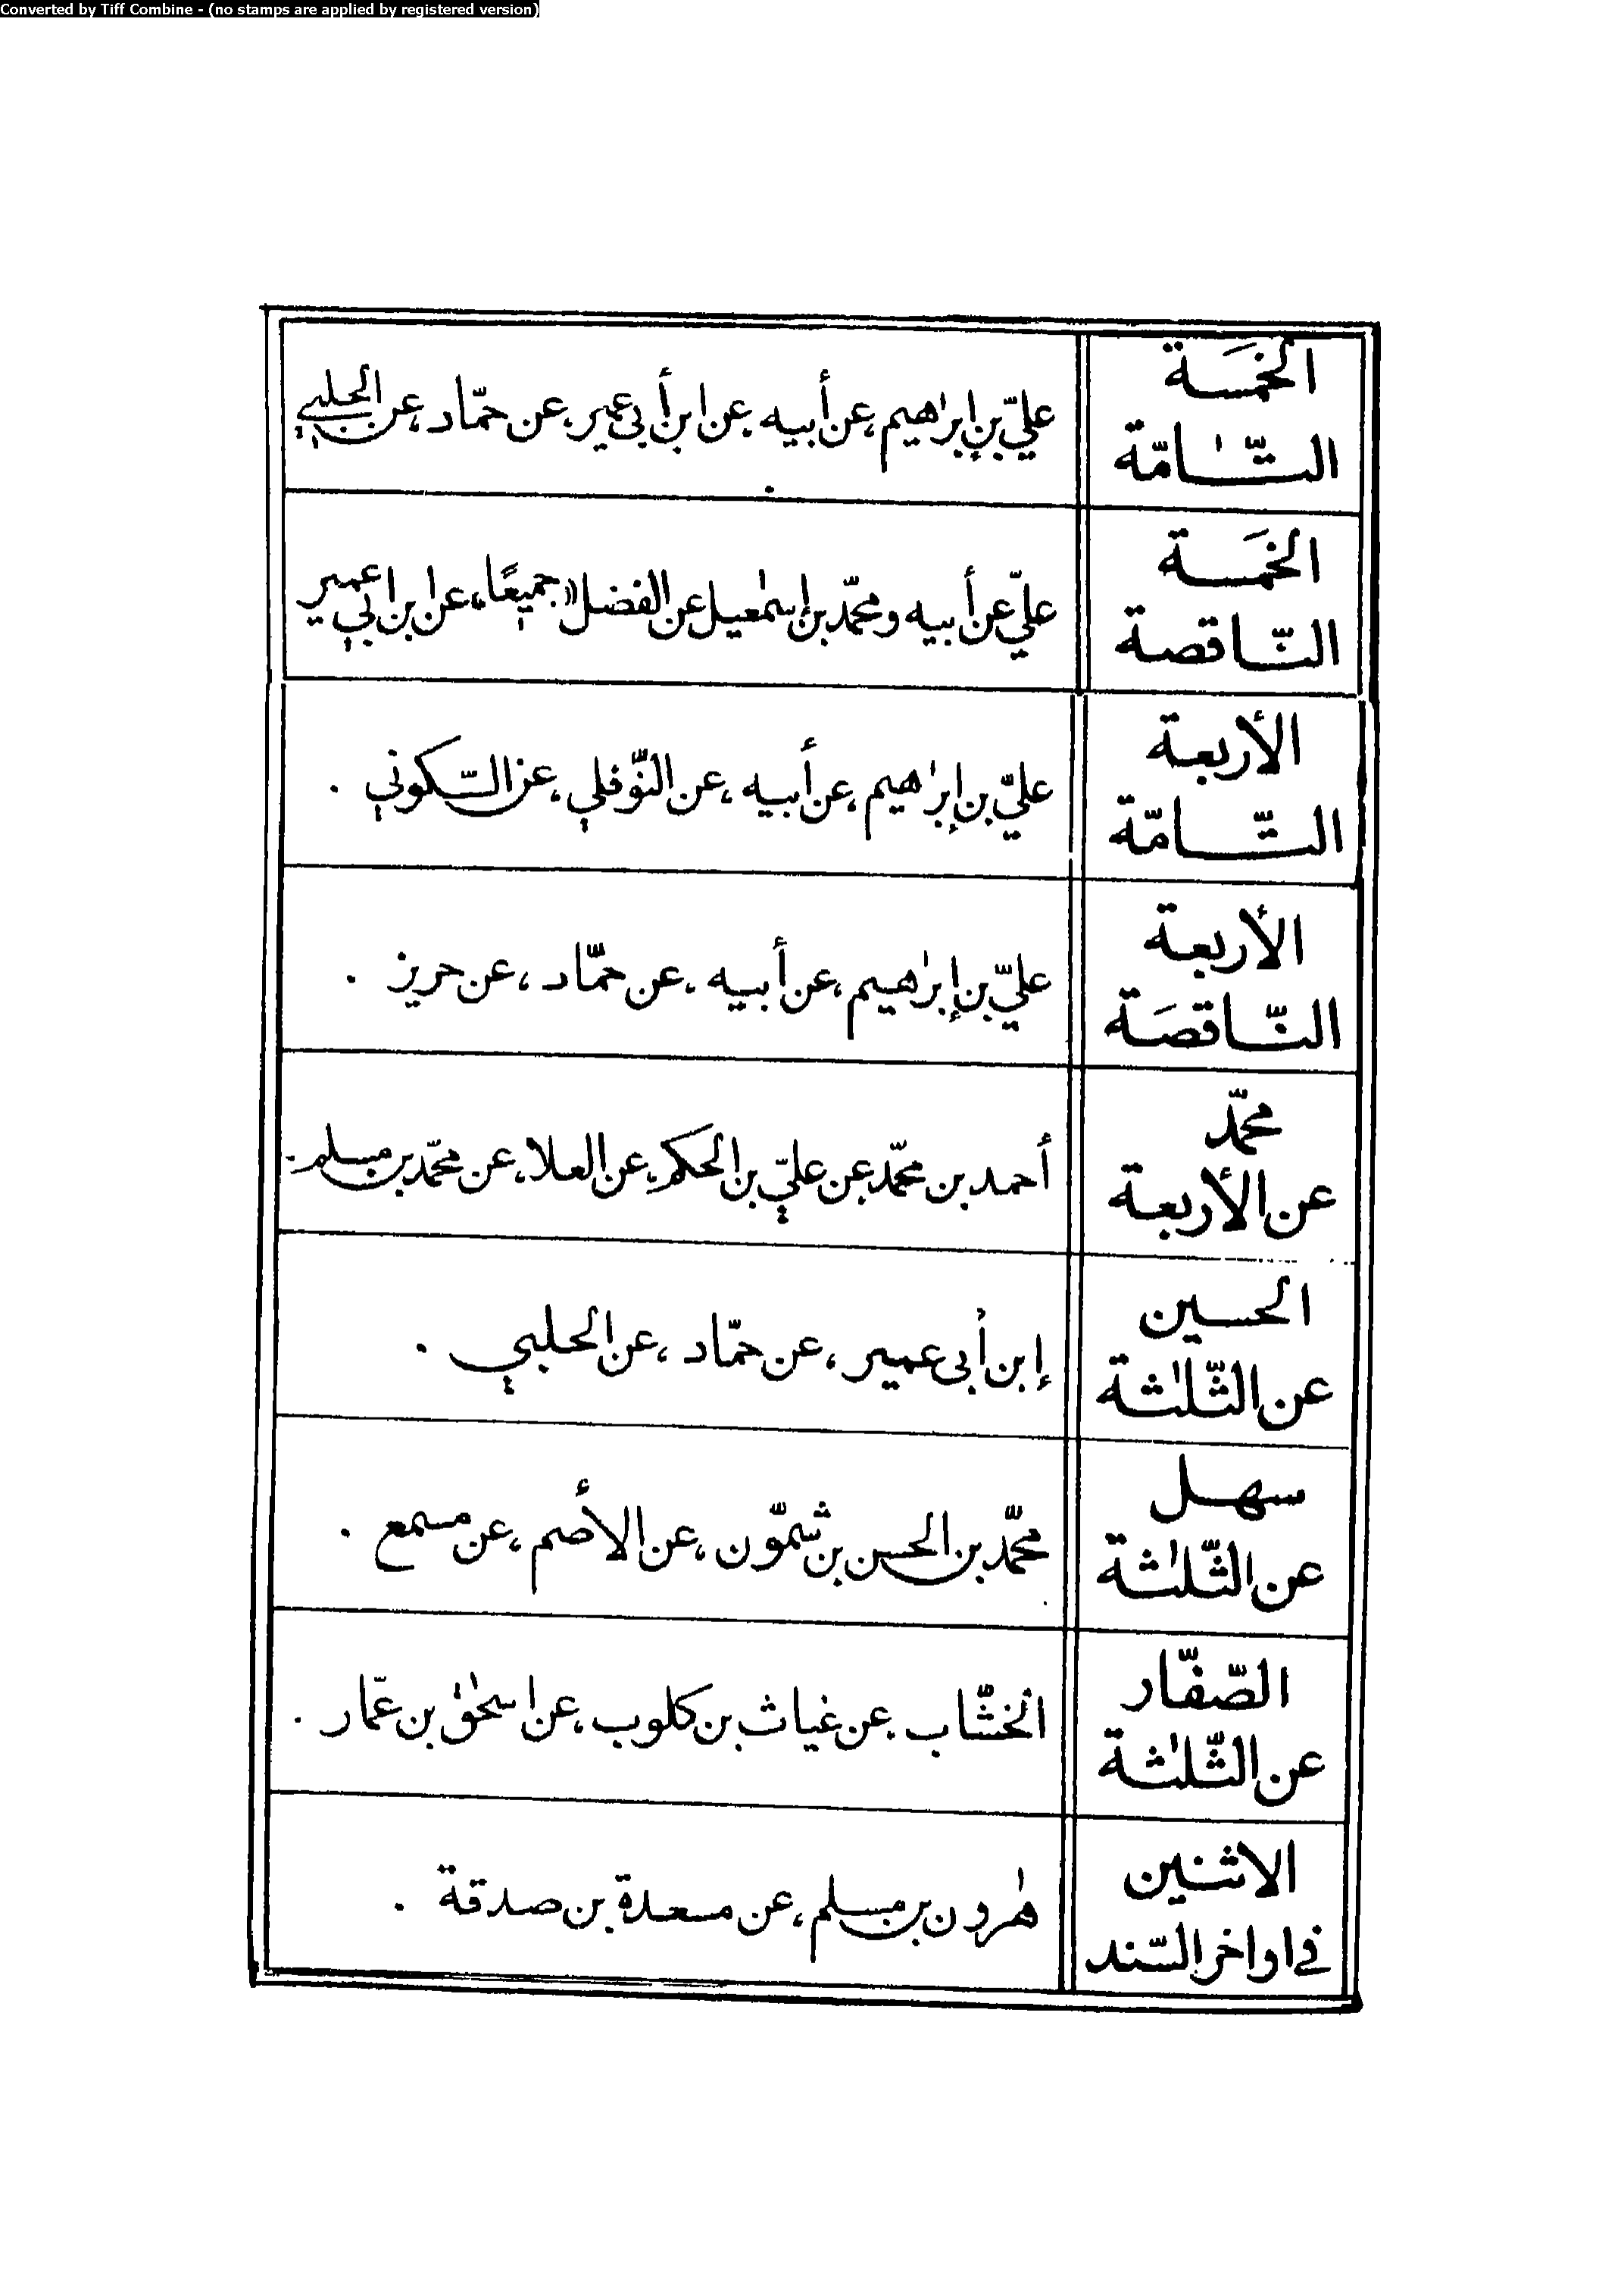 Converted by Tiff Combine - (no stamps are applied by registered version)
الخمسَة
التّامّة
عليّ بن إبرٰهيم، عن أبيه، عن ابن أبي عمير، عن حمّاد، عن الحلبي
الخمَسة
النّاقصة
عليّ عن أبيه ومحمّد بن إسمٰعيل عن الفضل «جميعًا»، عن ابن ابي عمير
الأربعة
التّامّة
عليّ بن إبرٰهيم، عن أبيه، عن النّوفلي، عن السّكوني .
الأربعة
النّاقصَة
عليّ بن إبرٰهيم، عن أبيه، عن حمّاد، عن حريز .
محمّد
عن الأربعة
أحمد بن محمّد عن عليّ بن الحكم، عن العلا، عن محمّد بن مسلم.
الحسين
عن الثّلٰثة
إبن أبى عمير، عن حمّاد، عن الحلبي .
سهل
عن الثّلٰثة
محمّد بن الحسن بن شمّون، عن الأصم، عن مسمع .
الصّفّار
عن الثّلٰثة
الخشّاب، عن غياث بن كلوب، عن اسحٰق بن عمّار .
الاثنين
في اواخر السّند
هٰرون بن مسلم، عن مسعدة بن صدقة .